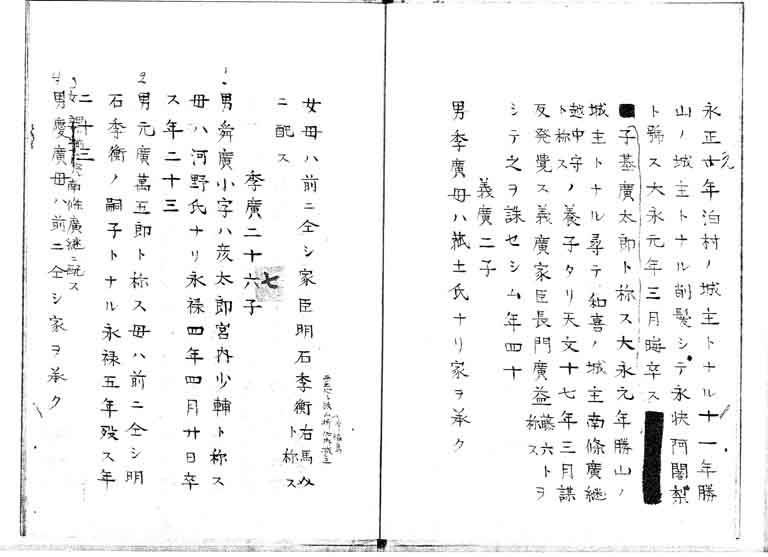 永正元年泊村ノ城主トナル十一年勝
山ノ城主トナル削髪シテ永快阿闍梨
ト號ス大永元年三月晦卒ス
子基廣太郎ト称ス大永元年勝山ノ
城主トナル尋テ和喜ノ城主南條廣継
越中守ト称スノ養子タリ天文十七年三月謀
反発覺ス義廣家臣長門廣益藤六ト称スヲ
シテ之ヲ誅セシム年四十
義廣二子
男季廣母ハ菰土氏ナリ家ヲ承ク
女母ハ前ニ仝シ家臣明石季衡右馬ト称ス
ニ配ス
季廣二十六子
七
1.男舜廣小字ハ彦太郎宮内少輔ト称ス
母ハ河野氏ナリ永禄四年四月廿日卒
ス年二十三
2男元廣萬五郎ト称ス母ハ前ニ仝シ明
石季衡ノ嗣子トナル永禄五年歿ス年
二十三
3女 南條廣継ニ配ス
4男慶廣母ハ前ニ仝シ家ヲ承ク